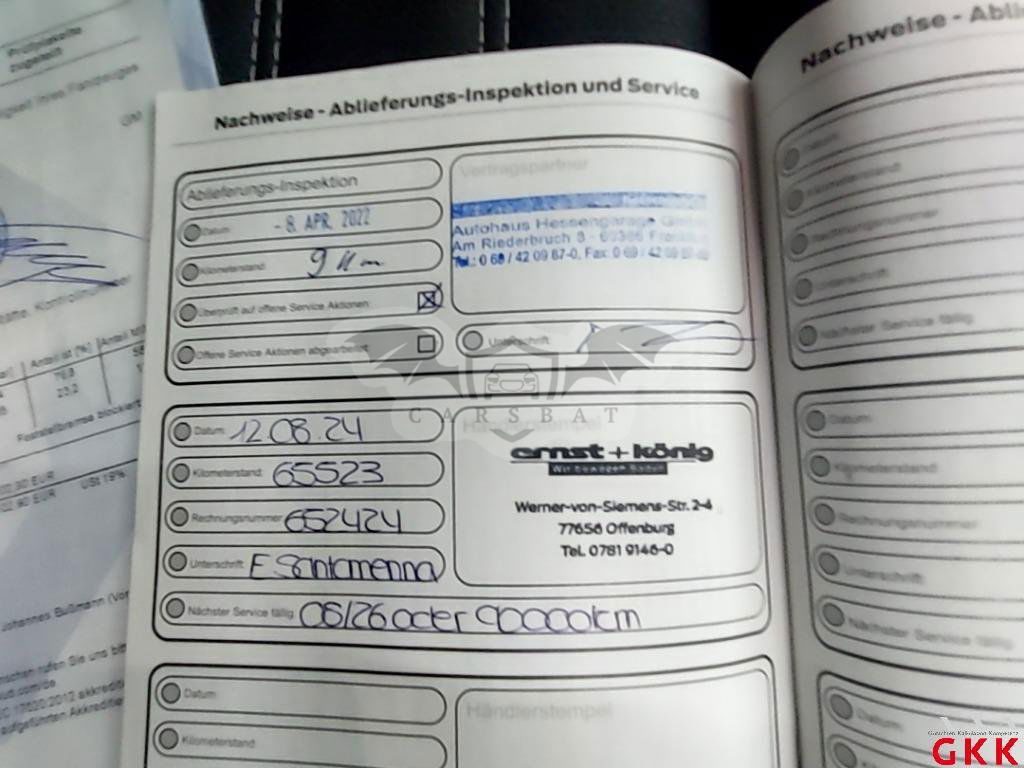 Prüfplakette
zugeteilt
Nachweise - Ablieferungs-Inspektion und Service
Ablieferungs-Inspektion
Vertragspartner
Datum: - 8. APR. 2022
Kilometerstand: 9 km
Überprüft auf offene Service Aktionen:
Offene Service Aktionen abgearbeitet:
Autohaus Hessengarage
Am Riederbruch 8 - 60386
Tel.: 0 69 / 42 09 87-0, Fax: 0 69 / 42 09 87
Unterschrift:
CARSBAT
Datum: 12.08.24
Kilometerstand: 65523
Rechnungsnummer: 652424
Unterschrift: E Santamenna
Nächster Service fällig: 08/26 oder 90000km
Händlerstempel
ernst + könig
Wir bewegen Baden
Werner-von-Siemens-Str. 2-4
77656 Offenburg
Tel. 0781 9146-0
Datum:
Kilometerstand:
Händlerstempel
Nachweise - Abli
Datum:
Kilometerstand:
Rechnungsnummer:
Unterschrift:
Nächster Service fällig:
Datum:
Kilometerstand:
Rechnungsnummer:
Unterschrift:
Nächster Service fällig:
Datum:
Anteil ist [%]
76,8
23,2
Feststellbremse blockiert
USt 19%
Johannes Bußmann (Vor
GKK